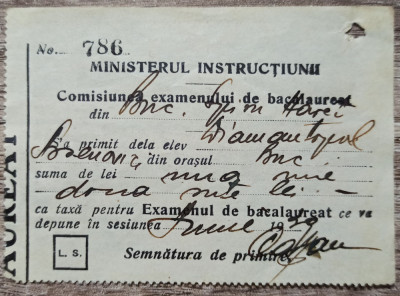 No. 786
MINISTERUL INSTRUCȚIUNII
Comisiunea examenului de bacalaureat
din Buc. Spiru Haret
S'a primit dela elev
din orașul Buc.
suma de lei una mie
două sute lei
ca taxă pentru Examenul de bacalaureat ce va
depune în sesiunea Iunie 19
L. S.
Semnătura de primire
AUREAT